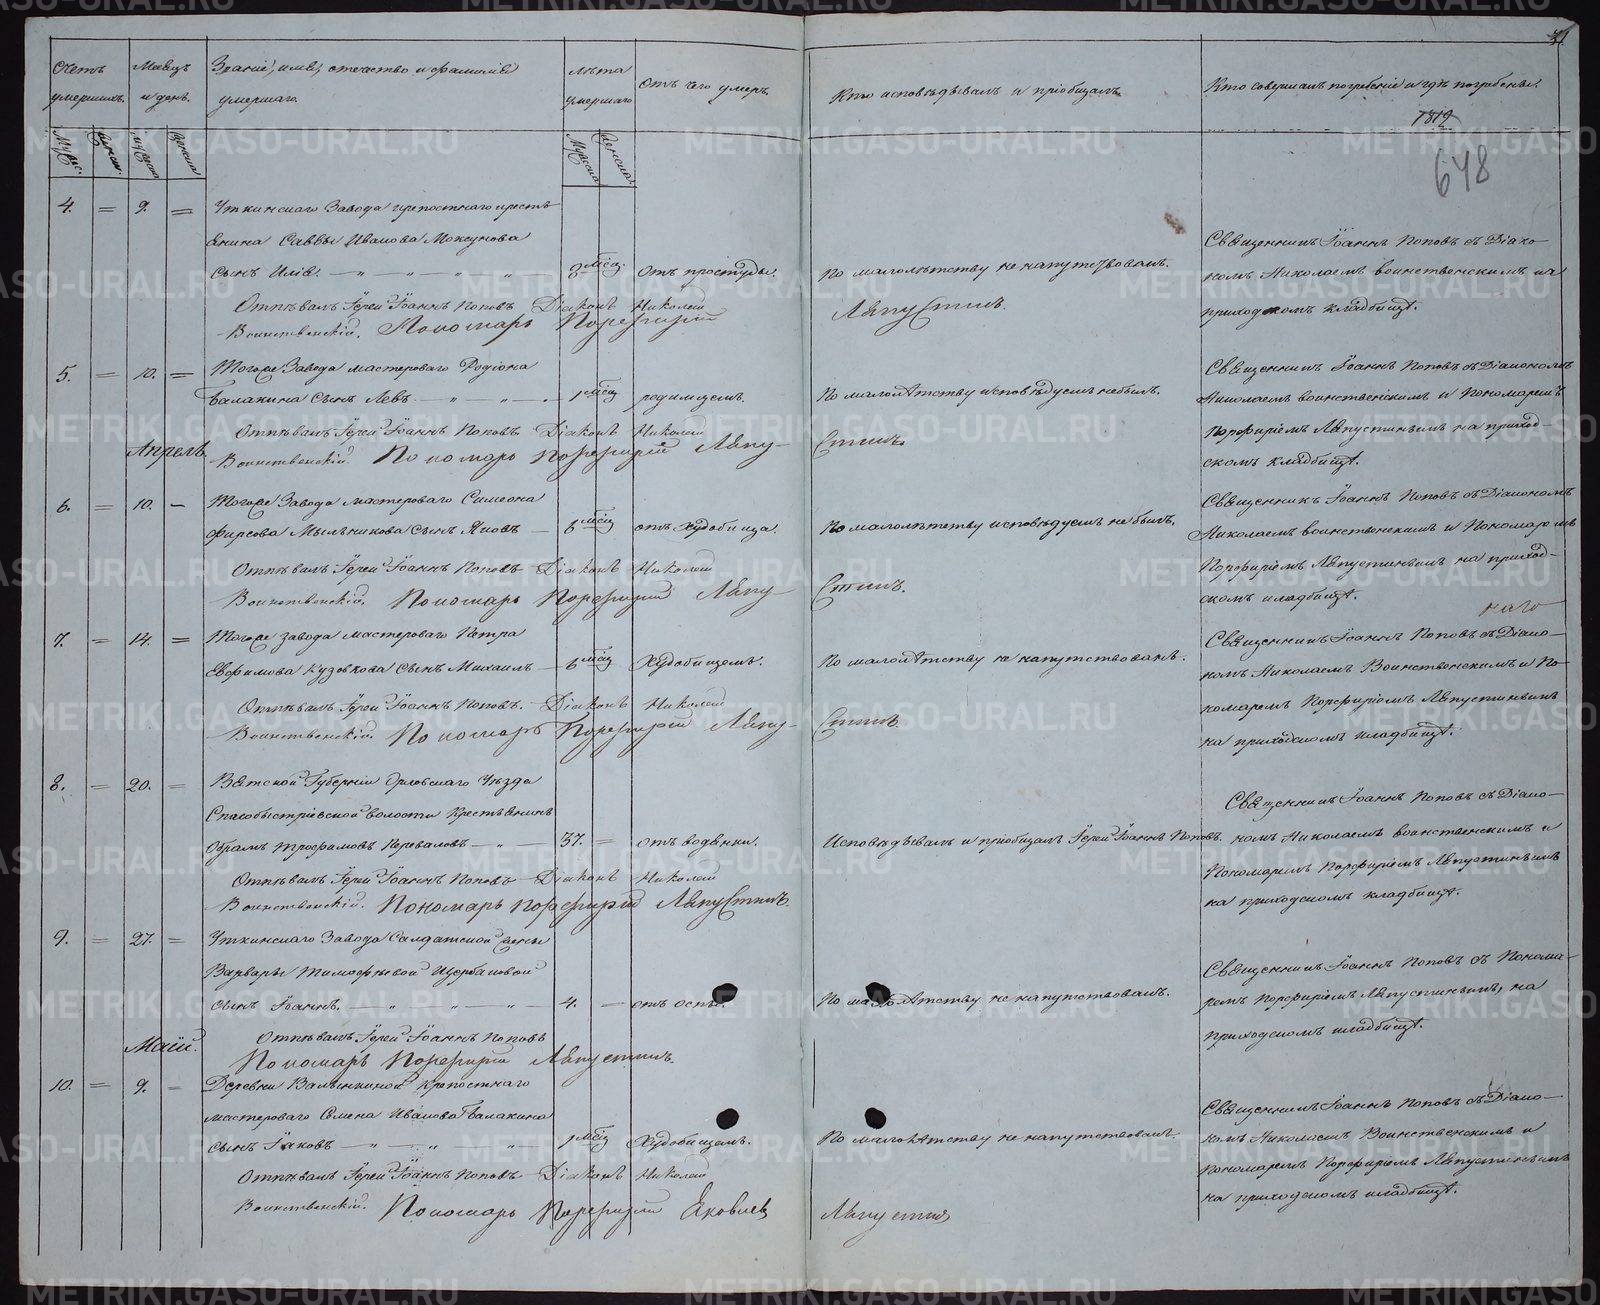 Счетъ умершихъ.
Мѣсяцъ и день.
Званіе, имя, отечество и фамилія умершаго.
Лѣта умершаго
Отъ чего умеръ.
Кто исповѣдывалъ и пріобщалъ.
Кто совершалъ погребеніе и гдѣ погребены.
1819
648
4. = 9. =
Уткинскаго Завода крепостнаго кресть-
янина Саввы Иванова
сынъ Илія.
3 мѣс.
Отъ простуды.
По малолѣтству не напутствованъ.
Священникъ Іоаннъ Поповъ съ Діако-
номъ Николаемъ Воинственскимъ на
приходскомъ кладбищѣ.
Отпѣвалъ Іерей Іоаннъ Поповъ Діаконъ Николай
Воинственскій. Пономарь Порфирій Августинъ.
5. = 10. =
Тогоже Завода мастероваго Родіона
Балакина сынъ Левъ
1 мѣс.
родимцемъ.
По малолѣтству исповѣдуемъ небылъ.
Священникъ Іоаннъ Поповъ съ Діакономъ
Николаемъ Воинственскимъ и Пономаремъ
Порфиріемъ Августинымъ на приход-
скомъ кладбищѣ.
Отпѣвалъ Іерей Іоаннъ Поповъ Діаконъ Николай
Апрель.
Воинственскій. Пономарь Порфирій Августинъ.
6. = 10. -
Тогоже Завода мастероваго Симеона
Фирсова Мыльникова сынъ Яковъ
6 мѣс.
отъ худобища.
По малолѣтству исповѣдуемъ не былъ.
Священникъ Іоаннъ Поповъ съ Діакономъ
Николаемъ Воинственскимъ и Пономаремъ
Порфиріемъ Августинымъ на приход-
скомъ кладбищѣ.
Отпѣвалъ Іерей Іоаннъ Поповъ Діаконъ Николай
Воинственскій. Пономарь Порфирій Августинъ.
7. = 14. =
Тогоже завода мастероваго Петра
Евфимова Кузовкова сынъ Михаилъ
6 мѣс.
Худобищемъ.
По малолѣтству не напутствованъ.
Священникъ Іоаннъ Поповъ съ Діако-
номъ Николаемъ Воинственскимъ и По-
номаремъ Порфиріемъ Августинымъ
на приходскомъ кладбищѣ.
Отпѣвалъ Іерей Іоаннъ Поповъ. Діаконъ Николай
Воинственскій. Пономарь Порфирій Августинъ
8. = 20. =
Вятской Губерніи Орловскаго Уѣзда
волости Крестьянинъ
Трофимовъ Переваловъ
37. =
отъ водянки.
Исповѣдывалъ и пріобщалъ Іерей Іоаннъ Поповъ.
Священникъ Іоаннъ Поповъ съ Діако-
номъ Николаемъ Воинственскимъ и
Пономаремъ Порфиріемъ Августинымъ
на приходскомъ кладбищѣ.
Отпѣвалъ Іерей Іоаннъ Поповъ Діаконъ Николай
Воинственскій. Пономарь Порфирій Августинъ.
9. = 27. =
Уткинскаго Завода Салдатской жены
Варвары Тимофѣевой Щербаковой
сынъ Іоаннъ.
4. -
отъ оспы.
По малолѣтству не напутствованъ.
Священникъ Іоаннъ Поповъ съ Понома-
ремъ Порфиріемъ Августинымъ, на
приходскомъ кладбищѣ.
Отпѣвалъ Іерей Іоаннъ Поповъ
Маій.
Пономарь Порфирій Августинъ.
10. = 9. -
Деревни крепостнаго
мастероваго Семена Иванова Балакина
сынъ Іаковъ
1 мѣс.
Худобищемъ.
По малолѣтству не напутствованъ.
Священникъ Іоаннъ Поповъ съ Діако-
номъ Николаемъ Воинственскимъ и
Пономаремъ Порфиріемъ Августинымъ
на приходскомъ кладбищѣ.
Отпѣвалъ Іерей Іоаннъ Поповъ Діаконъ Николай
Воинственскій. Пономарь Порфирій Яковлев Августин
METRIKI.GASO-URAL.RU